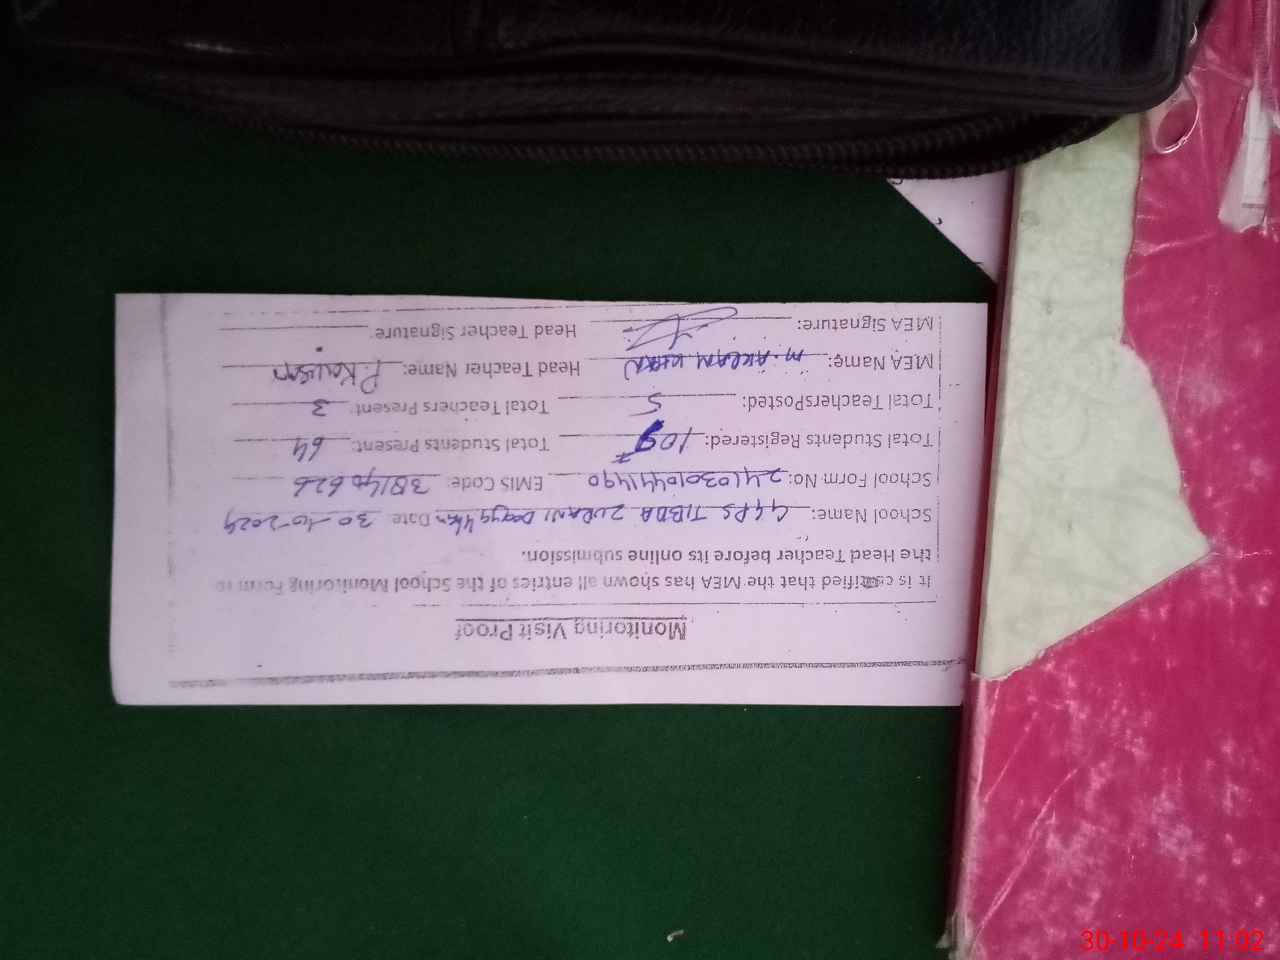 Monitoring Visit Proof
It is certified that the MEA has shown all entries of the School Monitoring Form to
the Head Teacher before its online submission.
School Name: GGPS TIBBA Date 30-10-2024
School Form No: 2410301041490 EMIS Code: 38140626
Total Students Registered: 109 Total Students Present: 64
Total TeachersPosted: 5 Total Teachers Present: 3
MEA Name: M. AKRAM KHAN Head Teacher Name:
MEA Signature: Head Teacher Signature:
30-10-24 11:02